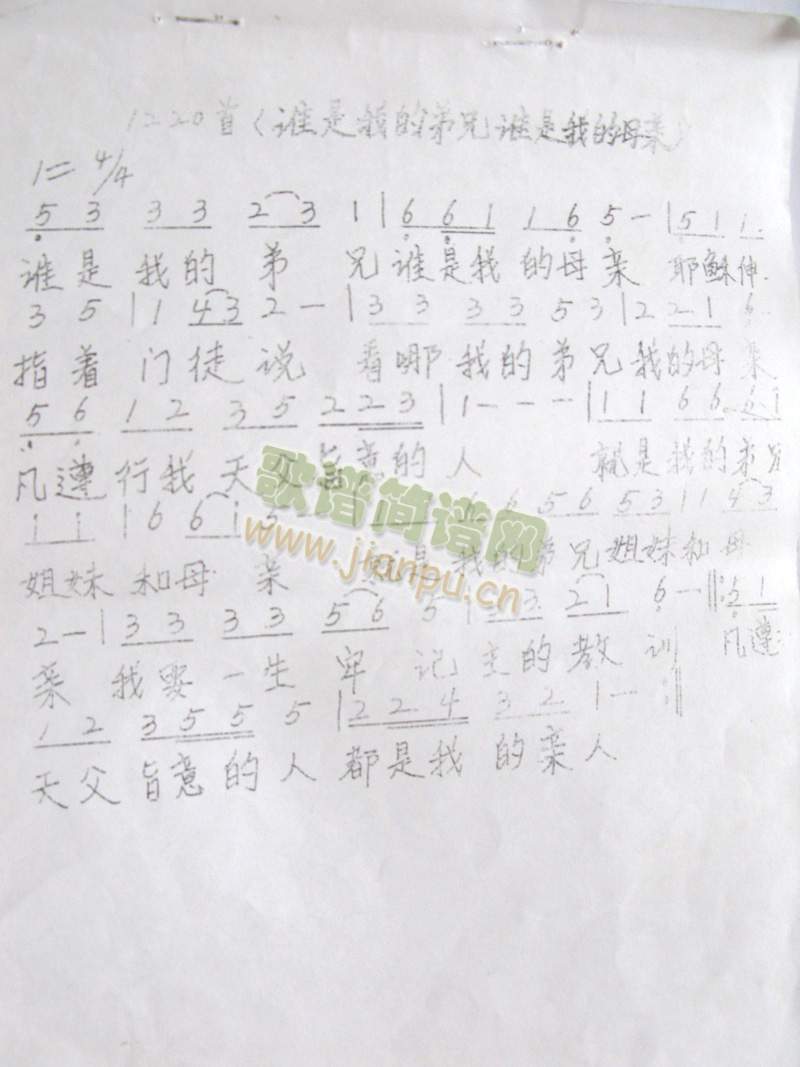 1220首（谁是我的弟兄谁是我的母亲）
1= 4/4
5 3 3 3 2 3 1 | 6 6 1 1 6 5 — | 5 1 1.
谁是我的弟兄谁是我的母亲 耶稣伸
3 5 | 1 4 3 2 — | 3 3 3 3 5 3 | 2 2 1 6
指着门徒说 看哪我的弟兄我的母亲
5 6 1 2 3 5 2 2 3 | 1 — — — | 1 1 6 6 6 1
凡遵行我天父旨意的人 就是我的弟兄
1 1 | 6 6 1 5 6 5 6 5 3 1 1 4 3
姐妹和母亲 就是我的弟兄姐妹和母
2 — | 3 3 3 3 5 6 5 | 3 2 1 6 — ‖: 5 1
亲 我要一生牢记主的教训 凡遵
1 2 3 5 5 5 | 2 2 4 3 2 1 — :‖
天父旨意的人都是我的亲人
歌谱简谱网
www.jianpu.cn